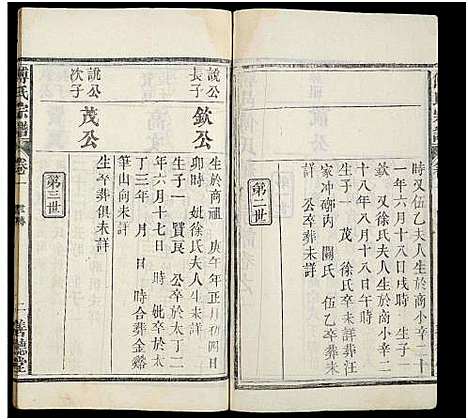 時 又伍乙夫人生於商小辛二十
一年六月十八日戌時 生子一
欽 又徐氏夫人生於商小辛二
十八年六月十八日午時 生
子一 茂 徐氏卒未詳葬汪
家冲硚内 關氏 伍乙卒葬未
詳 公卒葬未詳
第二世
說公
長子
欽公
生於商祖庚午年正月初四日
卯時 妣徐氏夫人生未詳
生子一 賢良 公卒於太丁二
年六月十七日 時 妣卒於太
丁三年 月 日 時合葬金雞
筆山向未詳
說公
次子
茂公
生卒葬俱未詳
第三世
傅氏宗譜
卷一
一善聽堂